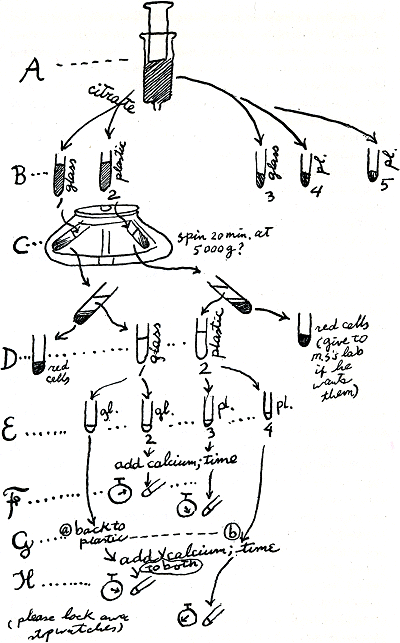 A
citrate
B
glass
1
plastic
2
glass
3
pl.
4
pl.
5
C
spin 20 min. at
5000g?
D
red
cells
glass
2
plastic
red cells
(give to
m3's lab
if he
wants
them)
E
gl.
gl.
2
pl.
3
pl.
4
add calcium; time
F
G
ⓐ back to
plastic
ⓑ
add calcium; time
to both
H
(please lock away
stopwatches)